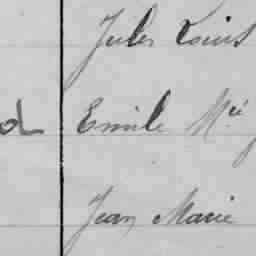 Jules Louis
Emile Mie
Jean Marie